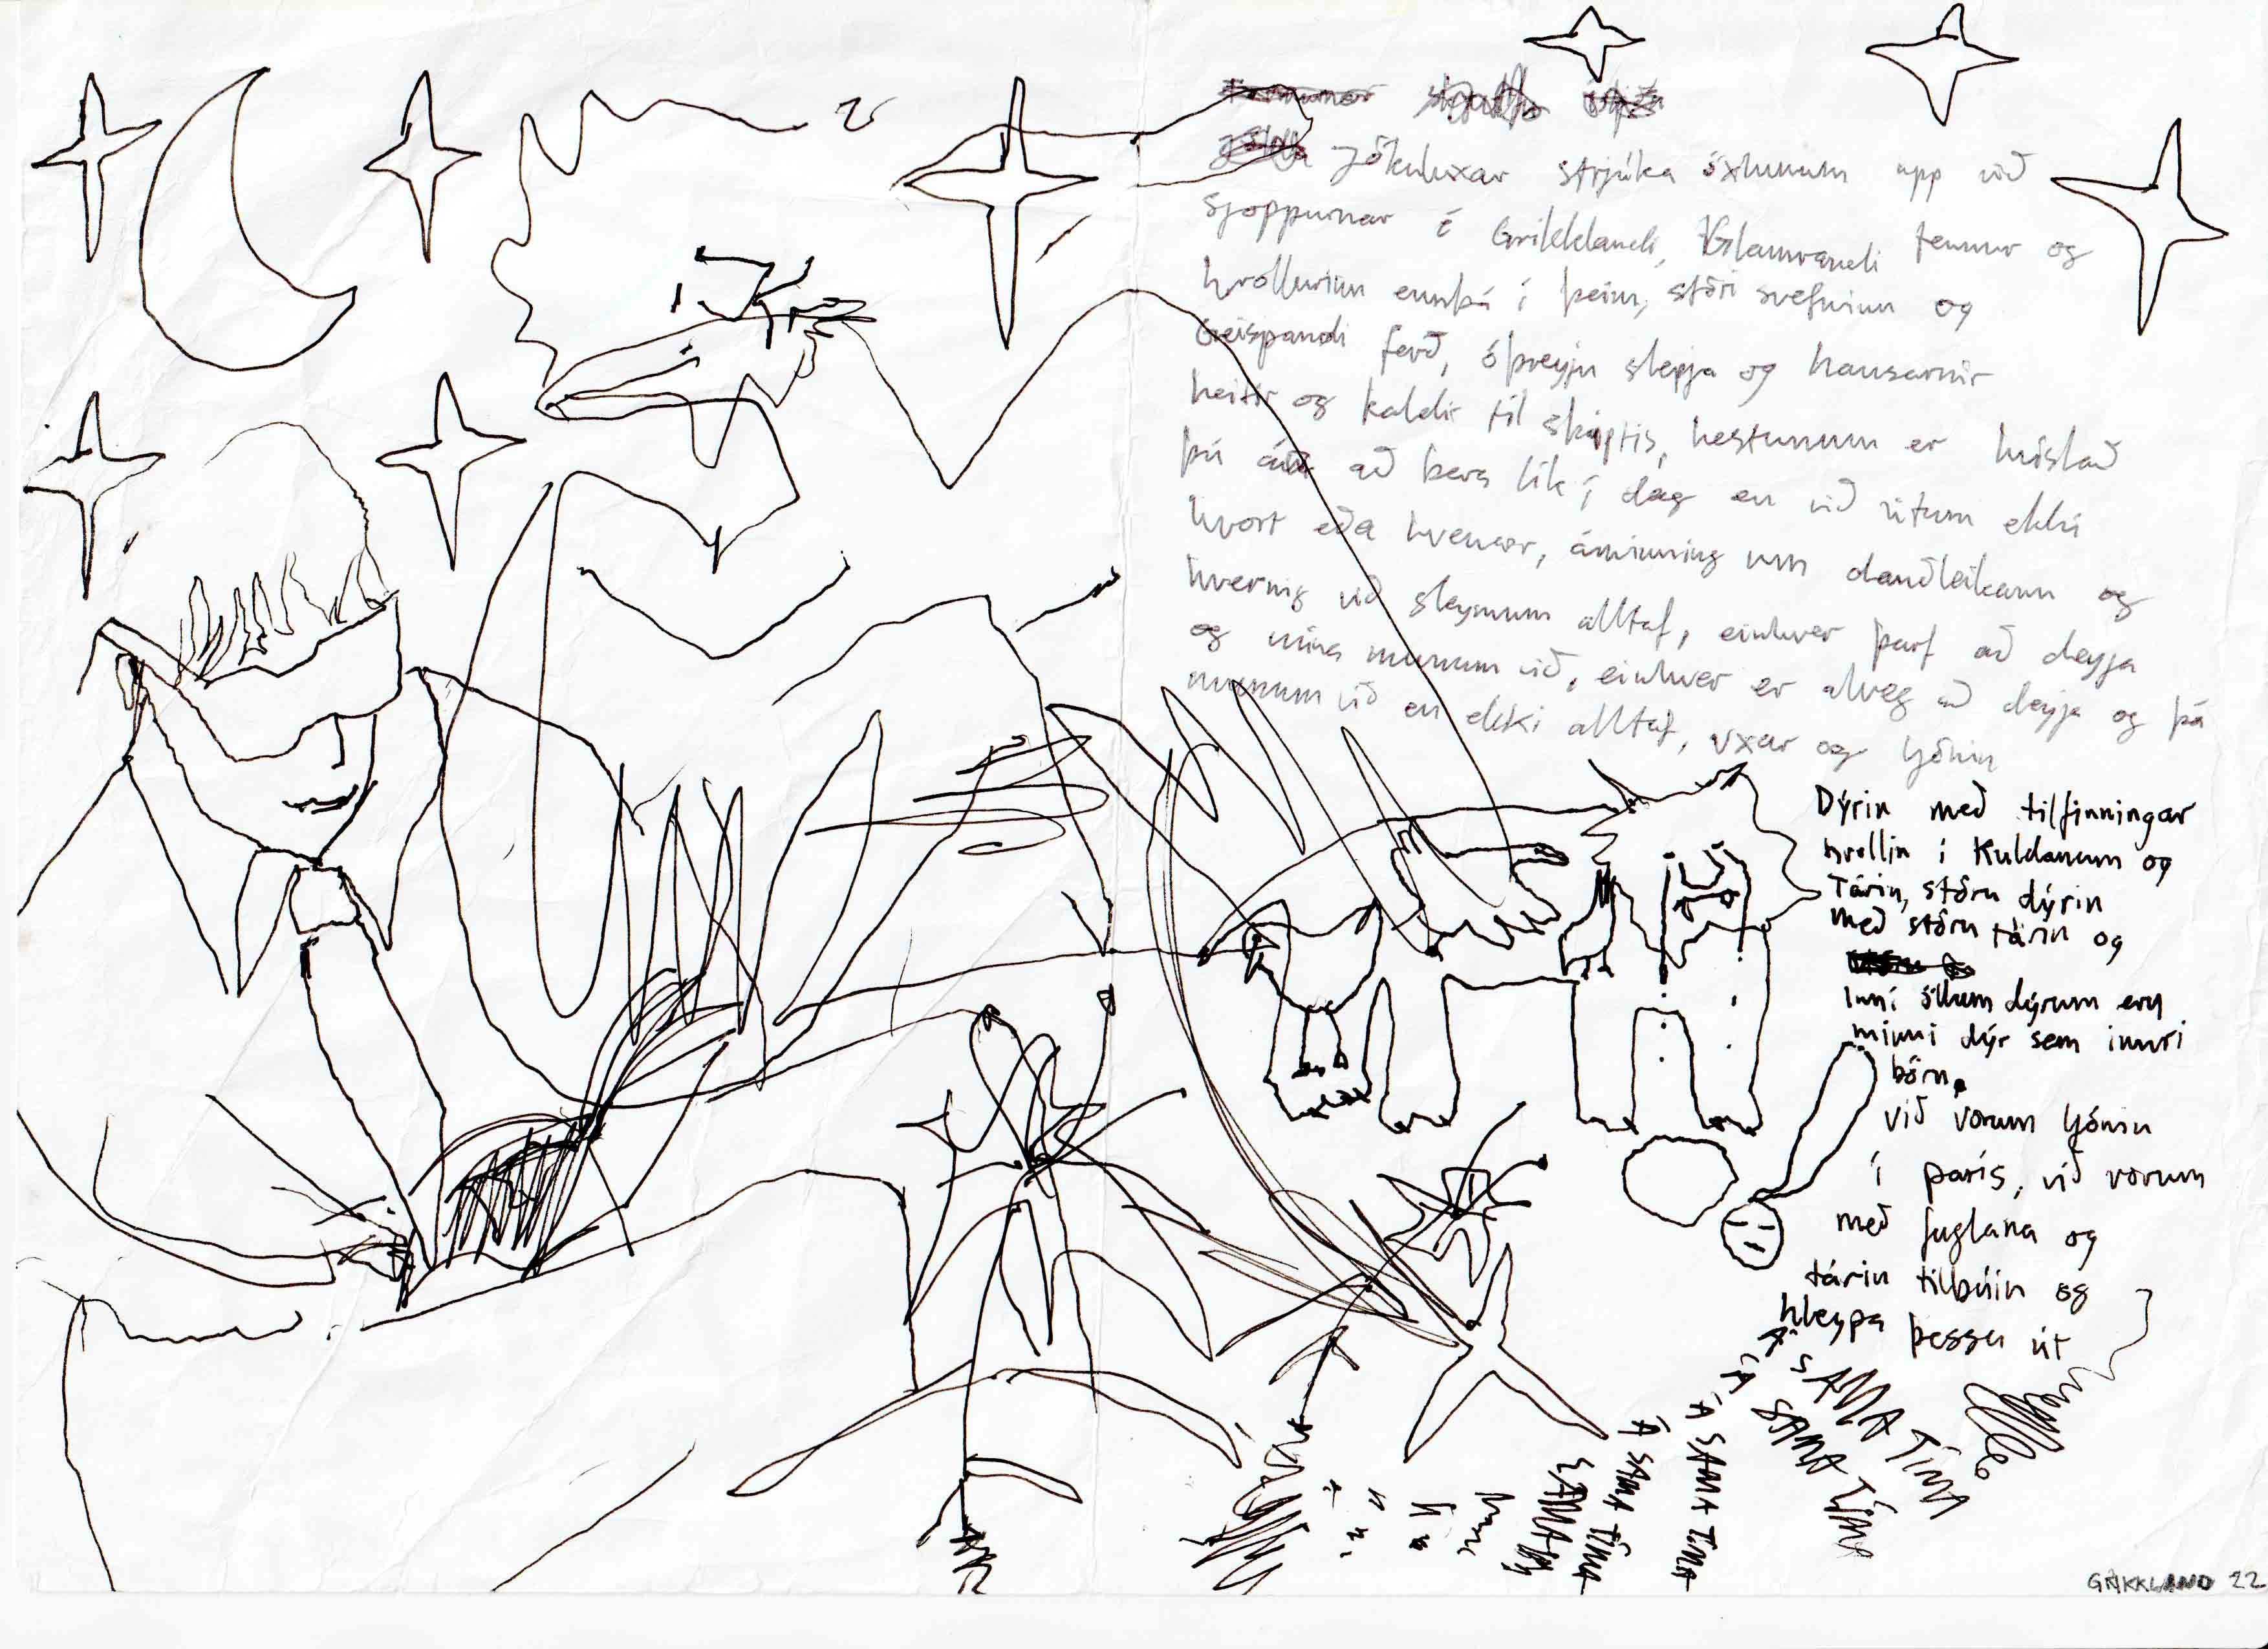 Jökuluxar strjúka öxlunum upp við
sjoppurnar í Grikklandi, Glamrandi tennur og
hrollurinn ennþá í þeim, stóri svefninn og
Geispandi ferð, óþreyju slepja og hausarnir
heitir og kaldir til skiptis, hestunum er hvíslað
þú átt að bera lík í dag en við vitum ekki
hvort eða hvenær, áminning um dauðleikann og
hvernig við gleymum alltaf, einhver þarf að deyja
og núna munum við, einhver er alveg að deyja og þá
munum við en ekki alltaf, uxar og ljónin
Dýrin með tilfinningar
hrollin í Kuldanum og
Tárin, stóru dýrin
með stóru tárin og
inní öllum dýrum eru
minni dýr sem innri
börn.
við vorum ljónin
í parís, við vorum
með fuglana og
tárin tilbúin og
hleypa þessu út
Á SAMA TÍMA
Á SAMA TÍMA
Á SAMA TÍMA
Á SAMA TÍMA
SAMA
GRIKKLAND 22